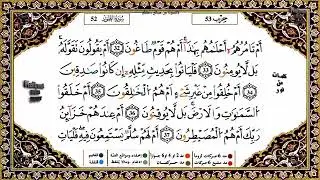 52 سورة الطور حزب 53
أَمْ تَأْمُرُهُمْ أَحْلَٰمُهُم بِهَٰذَآ أَمْ هُمْ قَوْمٌ طَاغُونَ 32 أَمْ يَقُولُونَ تَقَوَّلَهُۥ
بَل لَّا يُؤْمِنُونَ 33 فَلْيَأْتُوا۟ بِحَدِيثٍ مِّثْلِهِۦٓ إِن كَانُوا۟ صَٰدِقِينَ
34 أَمْ خُلِقُوا۟ مِنْ غَيْرِ شَىْءٍ أَمْ هُمُ ٱلْخَٰلِقُونَ 35 أَمْ خَلَقُوا۟
ٱلسَّمَٰوَٰتِ وَٱلْأَرْضَ بَل لَّا يُوقِنُونَ 36 أَمْ عِندَهُمْ خَزَآئِنُ
رَبِّكَ أَمْ هُمُ ٱلْمُصَۣيْطِرُونَ 37 أَمْ لَهُمْ سُلَّمٌ يَسْتَمِعُونَ فِيهِ فَلْيَأْتِ
كلمات
من
نور